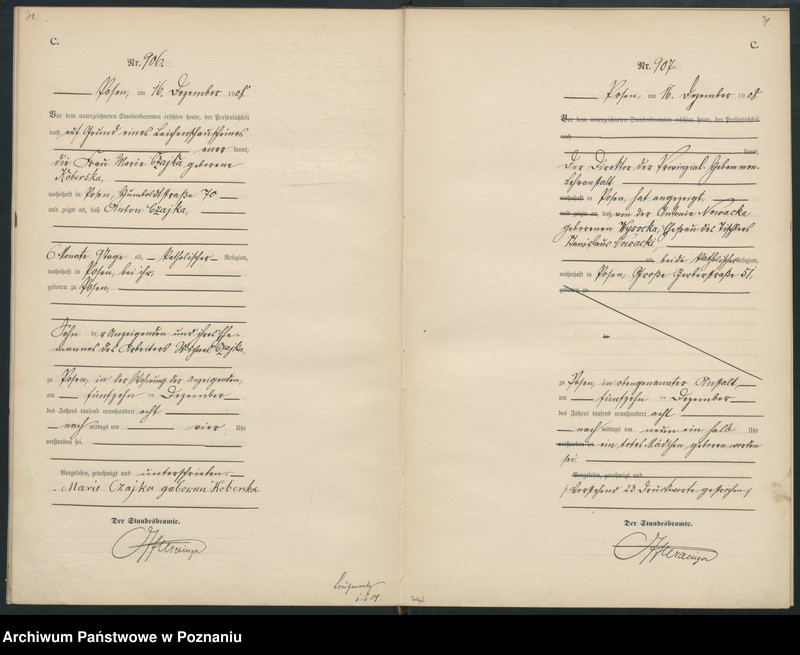 C.
Nr. 906.
Posen, am 16. Dezember 1908.
Vor dem unterzeichneten Standesbeamten erschien heute, der Persönlichkeit
nach auf Grund eines Leichenschauscheines
kannt,
die Frau Marie Czajka geborene
Koberska,
wohnhaft in Posen, Humboldtstraße 70
und zeigte an, daß Anton Czajka,
6 Monate 9 Tage alt, Katholischer Religion,
wohnhaft in Posen, bei ihr,
geboren zu Posen,
Sohn der Anzeigenden und ihres Ehe-
mannes des Arbeiters Michael Czajka,
zu Posen, in der Wohnung der Anzeigenden,
am fünfzehn ten Dezember
des Jahres tausend neunhundert acht
nach mittags um vier Uhr
verstorben sei.
Vorgelesen, genehmigt und unterschrieben.
Marie Czajka geborene Koberska
Der Standesbeamte.
31
C.
Nr. 907.
Posen, am 16. Dezember 1908.
Vor dem unterzeichneten Standesbeamten erschien heute, der Persönlichkeit
nach
kannt,
Der Direktor der Provinzial-Hebammen-
Lehranstalt
wohnhaft in Posen, hat angezeigt,
und zeigte an, daß von der Antonie Nowacka
geborenen Wysocka, Ehefrau des Tischlers
Stanislaus Nowacki
alt, beide Katholischer Religion,
wohnhaft in Posen, Große Gerberstraße 51,
geboren zu
zu Posen, in obengenannter Anstalt
am fünfzehn ten Dezember
des Jahres tausend neunhundert acht
nach mittags um neun ein halb Uhr
verstorben sei ein totes Mädchen geboren worden
sei.
Vorgelesen, genehmigt und
(Vorstehend 23 Druckworte gestrichen.)
Der Standesbeamte.
Archiwum Państwowe w Poznaniu